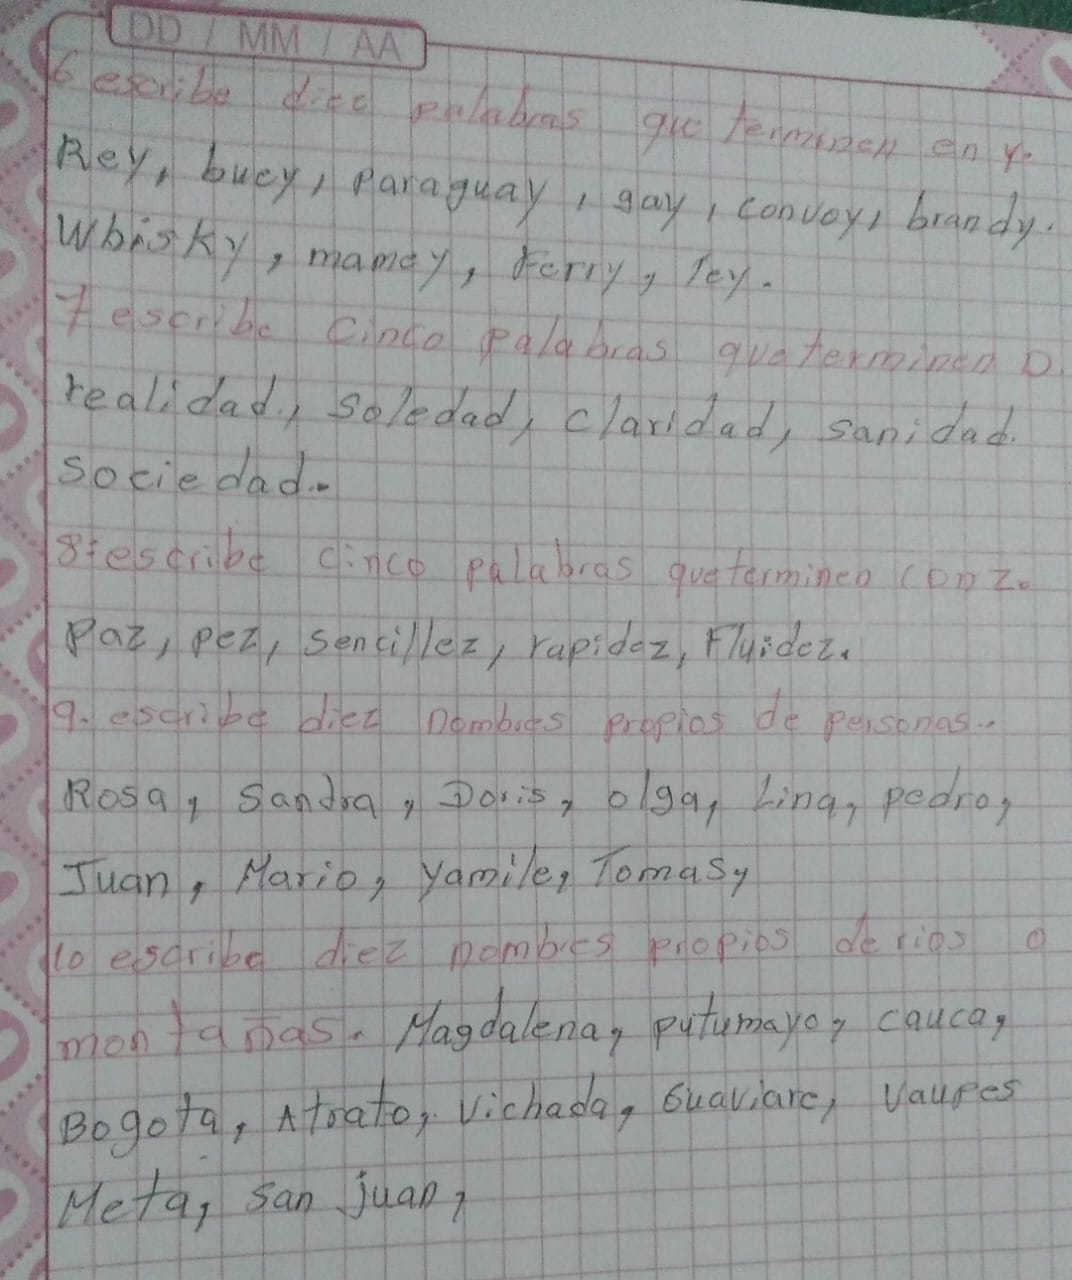 DD / MM / AA
6 escribe diez palabras que terminen en y.
Rey, buey, paraguay, gay, convoy, brandy.
Whisky, mamey, Ferry, ley.
7 escribe cinco palabras que terminen D
realidad, soledad, claridad, sanidad.
sociedad.
8 escribe cinco palabras que terminen con z.
Paz, pez, sencillez, rapidez, Fluidez.
9. escribe diez nombres propios de personas..
Rosa, Sandra, Doris, olga, Lina, pedro,
Juan, Mario, yamile, Tomas,
10 escribe diez nombres propios de rios o
montañas. Magdalena, putumayo, cauca,
Bogota, Atrato, Vichada, Guaviare, Vaupes
Meta, san juan,